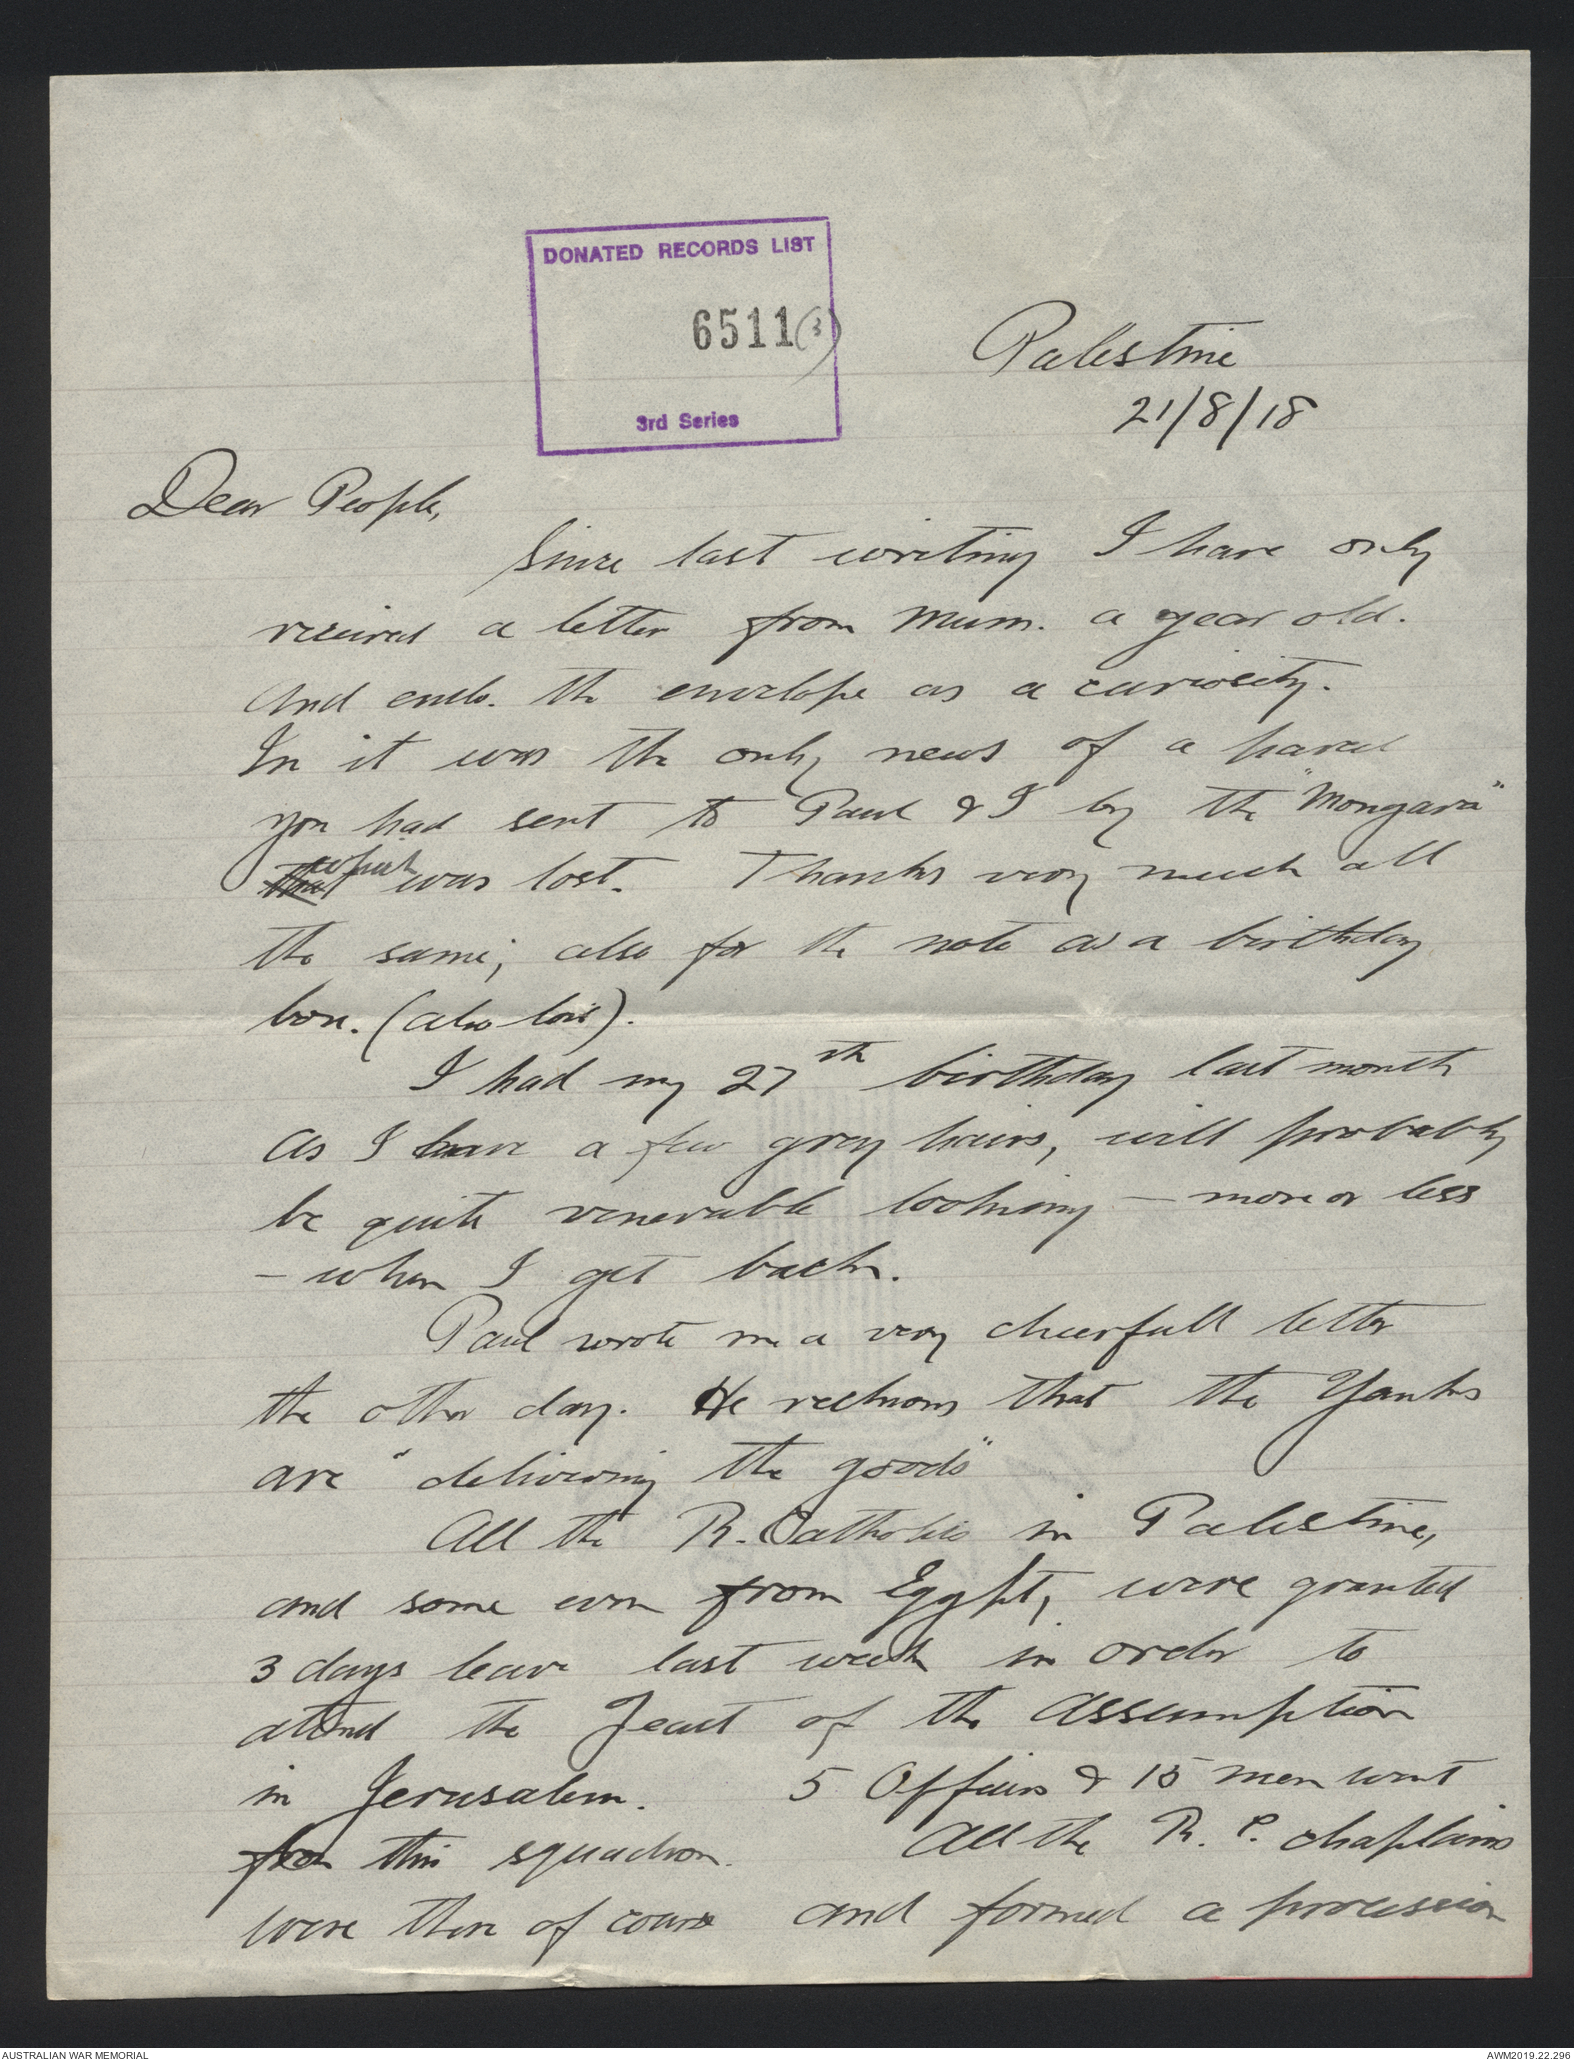 DONATED RECORDS LIST
6511(3)
3rd Series
Palestine
21/8/18
Dear People,
Since last writing I have only
received a letter from Mum. a year old.
And enclo. the envelope as a curiosity.
In it was the only news of a parcel
you had sent to Paul & I by the "Mongara"
which was lost. Thanks very much all
the same; also for the note as a birthday
box. (also lost).
I had my 27th birthday last month
As I have a few grey hairs, will probably
be quite venerable looking — more or less
— when I get back.
Paul wrote me a very cheerfull letter
the other day. He reckons that the Yanks
are "delivering the goods"
All the R. Catholics in Palestine,
and some even from Egypt, were granted
3 days leave last week in order to
attend the Feast of the Assumption
in Jerusalem. 5 Officers & 15 men went
from this squadron. All the R. C. chaplains
were there of course and formed a procession
AUSTRALIAN WAR MEMORIAL
AWM2019.22.296